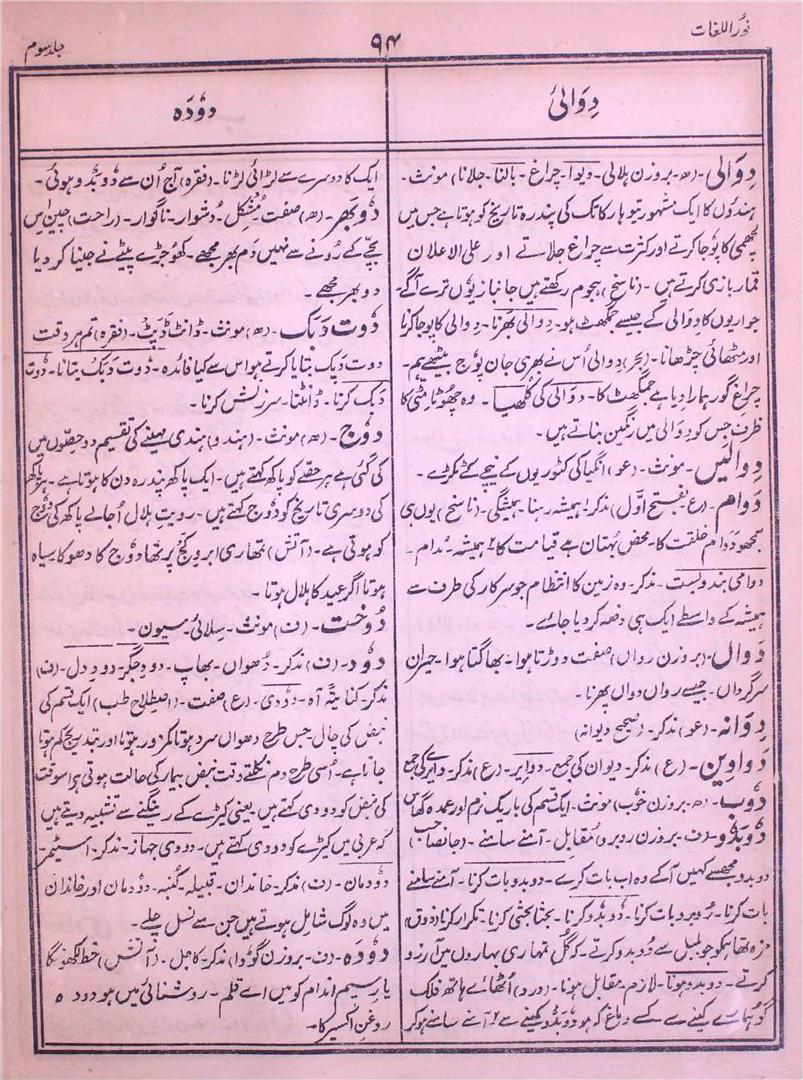 نور اللغات
۹۴
جلد سوم
دِوَالیْ
دوٗدَہ
دِوَالی۔ (ھ۔ بروزن ہلالی۔ دیوا۔ چراغ۔ بالنا۔ جلانا) مونث۔
ہندوٗں کا ایک مشہور تیوہار کاتک کی پندرہ تاریخ کو ہوتا ہے جس میں
لچھمی کا پوٗجا کرتے اور کثرت سے چراغ جلاتے اور علی الاعلان
قمار بازی کرتے ہیں۔ (ناسخ) ہجوم رکھتے ہیں جانباز یوٗں ترے آگے۔
جواریوں کا دوالی کے جیسے جمگھٹ ہو۔ دوالی بھرنا۔ دوالی کا پوجا کرنا
اور مٹھائی چڑھانا۔ (بحر) دوالی اُس نے بھری جان پوٗج بیٹھے ہم۔
چراغِ گور ہمارا دیا ہے جمگھٹ کا۔ دوالی کی کُلھیا۔ وہ چھوٹا مٹی کا
ظرف جس کو دوالی میں رنگین بناتے ہیں۔
دِوالیں۔ مونث۔ (عو) انگیا کی کٹوریوں کے نیچے کے ٹکڑے۔
دَوام۔ (ع بفتح اوّل) مذکر۔ ہمیشہ رہنا۔ ہمیشگی۔ (ناسخ) یوں ہی
سمجھو دوام خلقت کا۔ محض بُہتان ہے قیامت کا ۲ ہمیشہ۔ مُدام۔
دوامی بندوبست۔ مذکر۔ وہ زمین کا انتظام جو سرکار کی طرف سے
ہمیشہ کے واسطے ایک ہی دفعہ کر دیا جائے۔
دَوَاں۔ (بروزن رواں) صفت۔ دوڑتا ہوا۔ بھاگتا ہوا۔ حیران
سرگرداں۔ جیسے رواں دواں پھرنا۔
دِوانہ۔ (عو) مذکر۔ (صحیح دیوانہ)
دَواوین۔ (ع) مذکر۔ دیوان کی جمع۔ دوایر۔ (ع) مذکر۔ دایرہ کی جمع
دوٗب۔ (ھ۔ بروزن خوٗب) مونث۔ ایک قسم کی باریک نرم اور عمدہ گھاس
دوٗبدوٗ۔ (ف۔ بروزن روبرو) مُقابِل۔ آمنے سامنے۔ (جانصاحب)
دوبدو مجھسے کہیں آکے وہ اب بات کرے۔ دوبدو بات کرنا۔ آمنے سامنے
بات کرنا۔ رُوبرو بات کرنا۔ دُوبدُو کرنا۔ بحثا بحثی کرنا۔ تکرار کرنا (ذوق)
مزہ تھا ہمکو جو بلبل سے دُوبدو کرتے۔ کہ گُل تمہاری بہاروں میں آرزو
کرتے۔ دوبدو ہونا۔ لازم۔ مقابل ہونا۔ (درد) اُٹھائے ہاتھ فلک
گو ہمارے کینے سے۔ کسے دماغ کہ ہو دُوبدُو کمینے سے ۲ آمنے سامنے ہو کر
ایک کا دوسرے سے لڑائی لڑنا۔ (فقرہ) آج اُن سے دُوبدُو ہوئی۔
دوٗبھر۔ (ھ) صفت۔ مُشکِل۔ دُشوار۔ ناگوار۔ (راحت) چین اِس
بچّے کے رُونے سے نہیں دَم بھر مجھے۔ کھوجڑے پیٹے نے جینا کر دیا
دوبھر مجھے
دُوت دَبک۔ (ھ) مونث۔ ڈانٹ ڈپٹ۔ (فقرہ) تم ہر وقت
دوت دبک بتایا کرتے ہو اس سے کیا فائدہ۔ دُوت دَبک بتانا۔ دُوت
دَبک کرنا۔ ڈانٹنا۔ سرزنش کرنا۔
دوٗج۔ (ھ) مونث۔ (ہندو) ہندی مہینے کی تقسیم دو حصّوں میں
کی گئی ہے ہر حصّے کو پاکھ کہتے ہیں۔ ایک پاکھ پندرہ دن کا ہوتا ہے۔ ہر پاکھ
کی دوسری تاریخ کو دُوج کہتے ہیں۔ رویت ہلال اُجالے پاکھ کی دُوج
کو ہوتی ہے۔ (آتش) تمھاری ابروِ کج پر تھا دُوج کا دھوکا سیاہ
ہوتا اگر عید کا ہلال ہوتا۔
دُوخت۔ (ف) مونث۔ سِلائی۔ سیون۔
دُود۔ (ف) مذکر۔ دُھواں۔ بھاپ۔ دودِ جگر۔ دودِ دل۔ (ف)
مذکر۔ کنایۃً آہ۔ دُودی۔ (ع) صفت۔ (اصطلاح طب) ایک قسم کی
نبض کی چال۔ جس طرح دھواں سرد ہوتا کمزور ہوتا اور بتدریج کم ہوتا
جاتا ہے۔ اُسی طرح دم نکلتے وقت نبضِ بیمار کی حالت ہوتی ہے اسوقت
کی نبض کو دودی کہتے ہیں۔ یعنی کیڑے کے رینگنے سے تشبیہ دیتے ہیں
کہ عربی میں کیڑے کو دودی کہتے ہیں۔ دودی جہاز۔ مذکر۔ اسٹیمر
دودمان۔ (ف) مذکر۔ خاندان۔ قبیلہ۔ کُنبہ۔ دودمان اور خاندان
میں وہ لوگ شامل ہوتے ہیں جن سے نسل چلے۔
دُودَہ۔ (ف۔ بروزن گوٗدا) مذکر۔ کاجل۔ (آتش) خط لکھوں گا
یارِ سیم اندام کو میں اے قلم۔ روشنائی میں ہو دودہ
روغنِ اکسیر کا۔